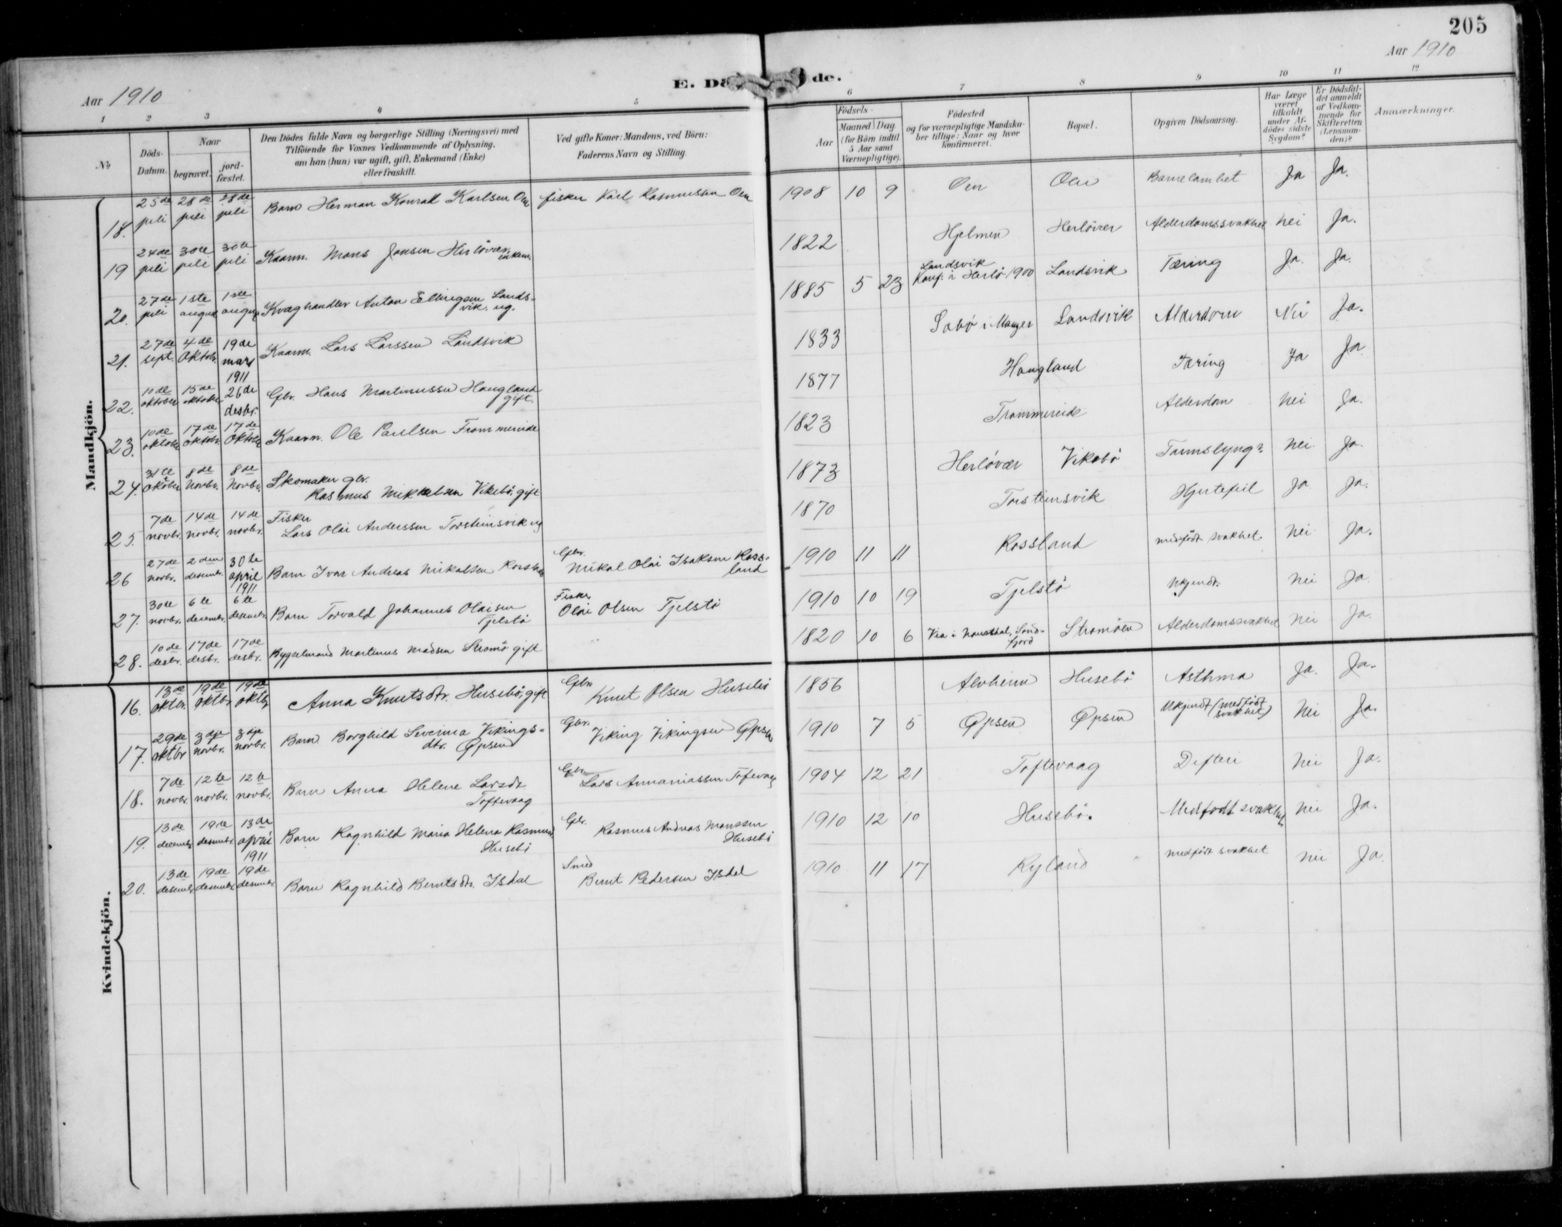 205
Aar 1910
Aar 1910
E. Dö de.
1 2 3 4 5 6 7 8 9 10 11 12
No
Döds-Datum.
Naar
begravet.
jord-fæstet.
Den Dödes fulde Navn og borgerlige Stilling (Næringsvei) med
Tilföiende for Voxnes Vedkommende af Oplysning,
om han (hun) var ugift, gift, Enkemand (Enke)
eller fraskilt.
Ved gifte Koner: Mandens, ved Börn:
Faderens Navn og Stilling.
Födsels-
Aar
Maaned Dag
(for Börn indtil
5 Aar samt
Værnepligtige).
Födested
og for værnepligtige Mandska-
ber tillige: Naar og hvor
konfirmeret.
Bopæl.
Opgiven Dödsaarsag.
Har Læge
været
tilkaldt
under Af-
dödes sidste
Sygdom?
Er Dödsfal-
det anmeldt
af Vedkom-
mende for
Skifteretten
(Lensman-
den)?
Anmærkninger.
Mandkjön.
18. 25de juli 28de juli 28de juli Barn Herman Konrad Karlsen Oen fisker Karl Rasmussen Oen 1908 10 9 Oen Oen Ja Ja.
19 24de juli 30te juli 30te juli Kaarm. Mons Jonsen Herlövær, enkem. 1822 Hjelmen Herlövær Alderdomssvakhet Nei Ja.
20. 27de juli 1ste august 1ste august Kræghandler Anton Ellingsen Lands-
vik. ug. 1885 5 23 Landsvik
Konf. i Herlö 1900 Landsvik Tæring Ja Ja.
21. 27de sept. 4de Oktob. 19de mars 1911 Kaarm. Lars Larssen Landsvik 1833 Sæbö i Manger Landsvik Alderdom Nei Ja.
22. 10de oktober 15de oktober 26de desbr. Gbr. Hans Martinussen Haugland
gift. 1877 Haugland Tæring Ja Ja
23. 10de oktober 17de oktobr 17de Oktobr Kaarm. Ole Paulsen Frommereide 1823 Alderdom Nei Ja.
24. 31te oktober 8de Novbr. 8de Novbr. Skomaker gbr.
Rasmus Mikkelsen Vikebö, gift 1873 Herlövær Vikebö Nei Ja.
25. 7de novbr. 14de novbr. 14de novbr. Fisker
Lars Olai Anderssen Torsteinsvik ug 1870 Torsteinsvik Hjertefeil Ja Ja.
26 27de novbr. 2den desember 30te april 1911 Barn Ivar Andreas Mikalsen Rossland Gbr.
Mikal Olai Isaksen Ross-
land 1910 11 11 Rossland medfödt svakhet Nei Ja.
27. 30te novbr. 6te desember 6te desember Barn Torvald Johannes Olaisen
Tjelstö Fisker
Olai Olsen Tjelstö 1910 10 19 Tjelstö Ukjendt. Nei Ja
28. 10de desbr. 17de desbr. 17de desbr. Bygselmand Martinus Madsen Strömö gift 1820 10 6 Alderdomssvakhet Nei Ja.
Kvindekjön.
16. 13de oktbr. 19de oktbr. 19de oktbr. Anna Knutsdtr. Husebö, gift Gbr.
Knut Olsen Husebö 1856 Alvheim Husebö Asthma Ja. Ja.
17. 29de oktbr 3dje novbr. 3dje novbr. Barn Borghild Severina Vikings-
dtr. Öpsen Gbr.
Viking Vikingsen Öpsen 1910 7 5 Öpsen Öpsen Ukjendt (medfödt
svakhet) Nei Ja.
18. 7de novbr. 12te novbr. 12te novbr. Barn Anna Helene Larsdtr
Toftevaag Gbr.
Lars Annaniassen Toftevaag 1904 12 21 Toftevaag Difteri Nei Ja.
19. 13de desember 19de desember 13de april 1911 Barn Ragnhild Maria Helena Rasmusd.
Husebö Gbr.
Rasmus Andreas Monssen
Husebö 1910 12 10 Husebö. Medfödt svakhet Nei Ja.
20. 13de desember 19de desember 19de desember Barn Ragnhild Berntsdtr. Isdal Smed
Bernt Pedersen Isdal 1910 11 17 Ryland medfödt svakhet Nei Ja.